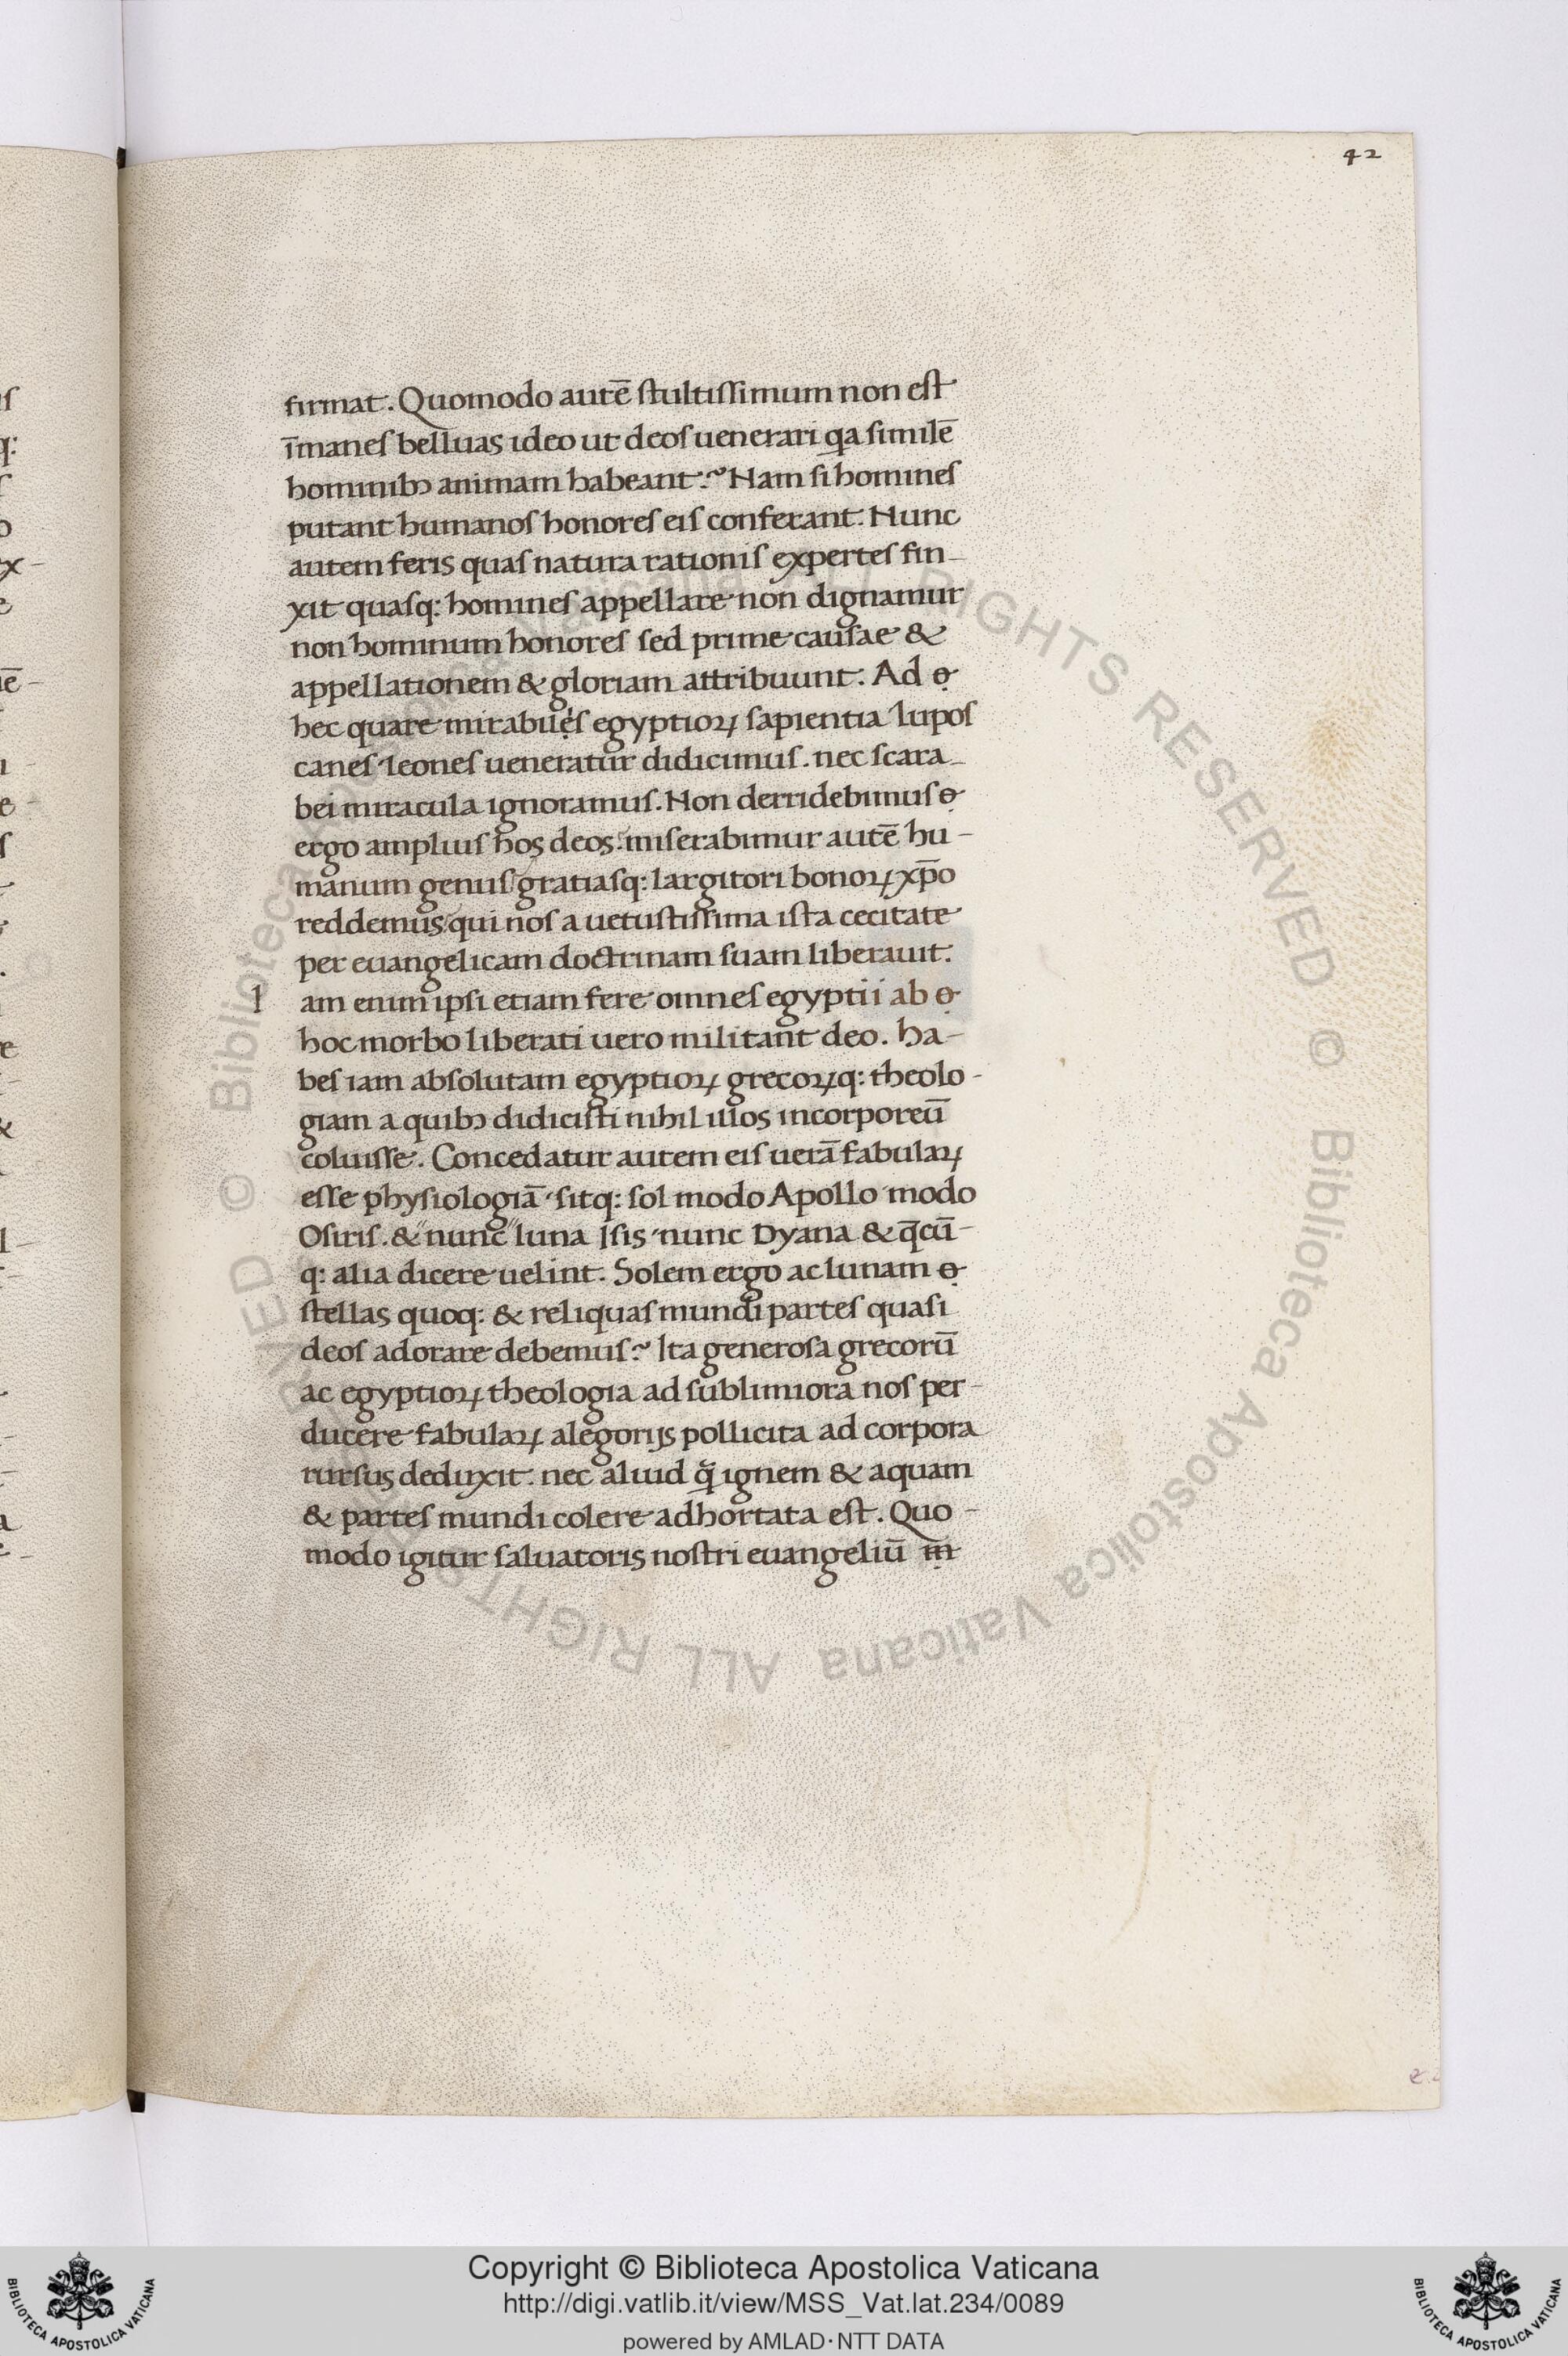 42
firmat. Quomodo autē stultissimum non est
īmanes belluas ideo ut deos uenerari qa similē
hominibꝫ animam habeant? Nam si homines
putant humanos honores eis conferant. Nunc
autem feris quas natura rationis expertes fin-
xit quasq: homines appellare non dignamur
non hominum honores sed prime causae &
appellationem & gloriam attribuunt. Ad
hec quare mirabues egyptioꝝ sapientia lupos
canes leones ueneratur didicimus. nec scara-
bei miracula ignoramus. Non derridebimus
ergo amplius hos deos: miserabimur autē hu-
manum genus gratiasq: largitori bonoꝝ xp̄o
reddemus qui nos a uetustissima ista cecitate
per euangelicam doctrinam suam liberauit.
I am enim ipsi etiam fere omnes egyptii ab
hoc morbo liberati uero militant deo. ha-
bes iam absolutam egyptioꝝ grecoꝝq: theolo-
giam a quibꝫ didicisti nihil illos incorporeū
coluisse. Concedatur autem eis uerā fabulaꝝ
esse physiologiā sitq: sol modo Apollo modo
Osiris. & nunc luna Isis nunc Dyana & q̄cū-
q: alia dicere uelint. Solem ergo ac lunam
stellas quoq: & reliquas mundi partes quasi
deos adorare debemus? Ita generosa grecorū
ac egyptioꝝ theologia ad sublimiora nos per-
ducere fabulaꝝ alegorijs pollicita ad corpora
rursus deduxit. nec aliud q̃ ignem & aquam
& partes mundi colere adhortata est. Quo-
modo igitur saluatoris nostri euangeliū
© Biblioteca Apostolica Vaticana ALL RIGHTS RESERVED © Biblioteca Apostolica Vaticana ALL RIGHTS RESERVED
Copyright © Biblioteca Apostolica Vaticana
http://digi.vatlib.it/view/MSS_Vat.lat.234/0089
powered by AMLAD·NTT DATA
BIBLIOTECA APOSTOLICA VATICANA
BIBLIOTECA APOSTOLICA VATICANA